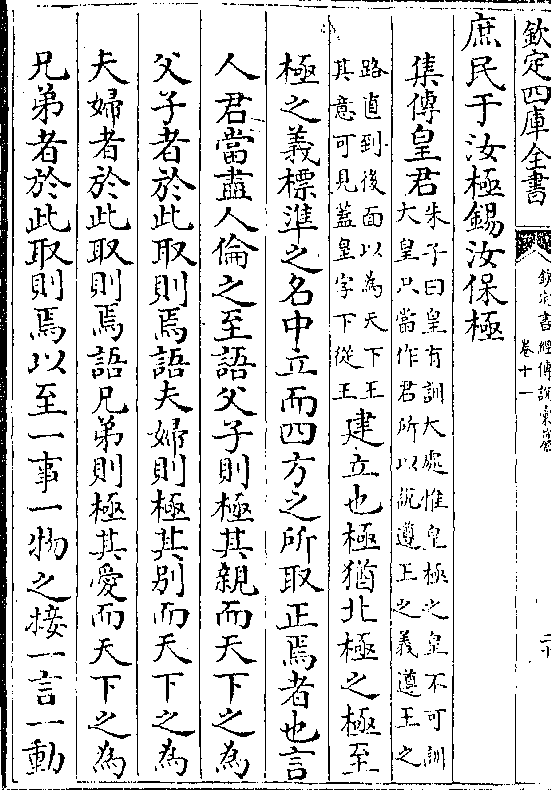 欽定四庫全書
欽定書經傳說彙纂
卷十一
二十
庶民于汝極錫汝保極
集傳皇君
朱子曰皇有訓大處惟皇極之皇不可訓
大皇只當作君所以說遵王之義遵王之
路直到後面以為天下王
其意可見蓋皇字下從王
建立也極猶北極之極至
極之義標準之名中立而四方之所取正焉者也言
人君當盡人倫之至語父子則極其親而天下之為
父子者於此取則焉語夫婦則極其别而天下之為
夫婦者於此取則焉語兄弟則極其愛而天下之為
兄弟者於此取則焉以至一事一物之接一言一動